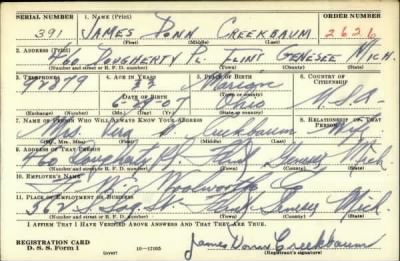 SERIAL NUMBER 1. NAME (Print) ORDER NUMBER
391 JAMES DONN CREEKBAUM 2626
(First) (Middle) (Last)
2. ADDRESS (Print)
460 DOUGHERTY PL. FLINT GENESEE MICH.
(Number and street or R. F. D. number) (Town) (County) (State)
3. TELEPHONE 4. AGE IN YEARS 5. PLACE OF BIRTH 6. COUNTRY OF CITIZENSHIP
33 Marion
DATE OF BIRTH
6-29-07 Ohio U.S.A.
(Exchange) (Number) (Mo.) (Day) (Yr.) (State or country)
7. NAME OF PERSON WHO WILL ALWAYS KNOW YOUR ADDRESS 8. RELATIONSHIP OF THAT PERSON
Mrs. Creekbaum Wife
(Mr., Mrs., Miss) (First) (Middle) (Last)
9. ADDRESS OF THAT PERSON
460 Dougherty Pl. Flint Genesee Mich
(Number and street or R. F. D. number) (Town) (County) (State)
10. EMPLOYER'S NAME
F. W. Woolworth Co
11. PLACE OF EMPLOYMENT OR BUSINESS
562 S. Sag. St. Flint Genesee Mich
(Number and street or R. F. D. number) (Town) (County) (State)
I AFFIRM THAT I HAVE VERIFIED ABOVE ANSWERS AND THAT THEY ARE TRUE.
REGISTRATION CARD
D. S. S. Form 1 (over) 16-17105 James Donn Creekbaum
(Registrant's signature)